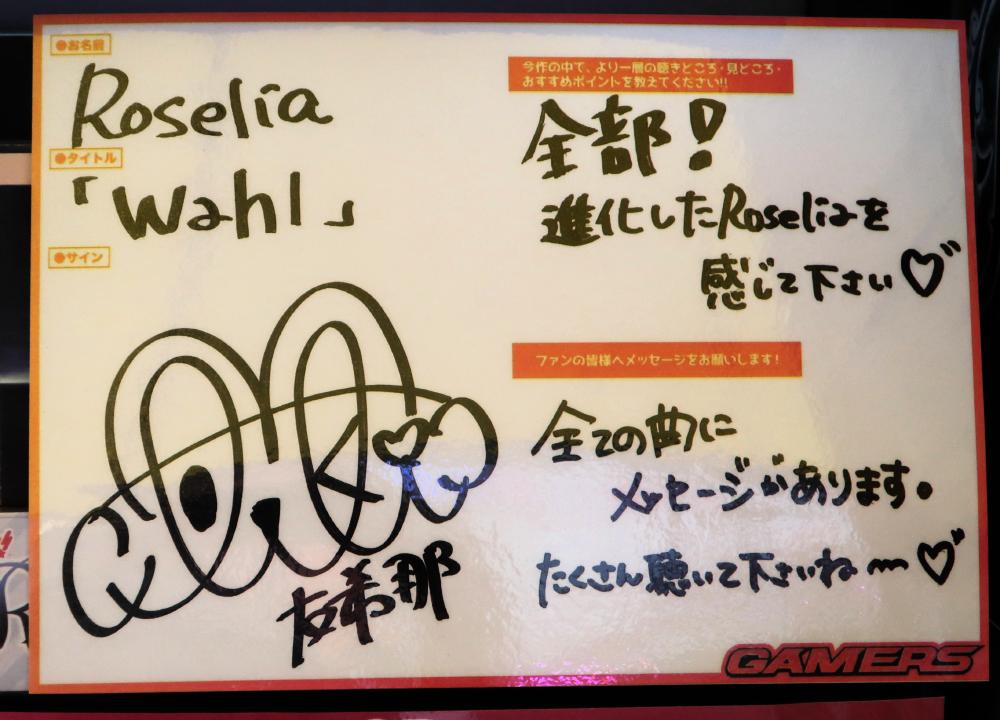 ●お名前
Roselia
●タイトル
「Wahl」
●サイン
友希那
今作の中で、より一層の聴きどころ・見どころ・
おすすめポイントを教えてください!!
全部！
進化したRoseliaを
感じて下さい♡
ファンの皆様へメッセージをお願いします！
全ての曲に
メッセージがあります。
たくさん聴いて下さいね〜♡
GAMERS